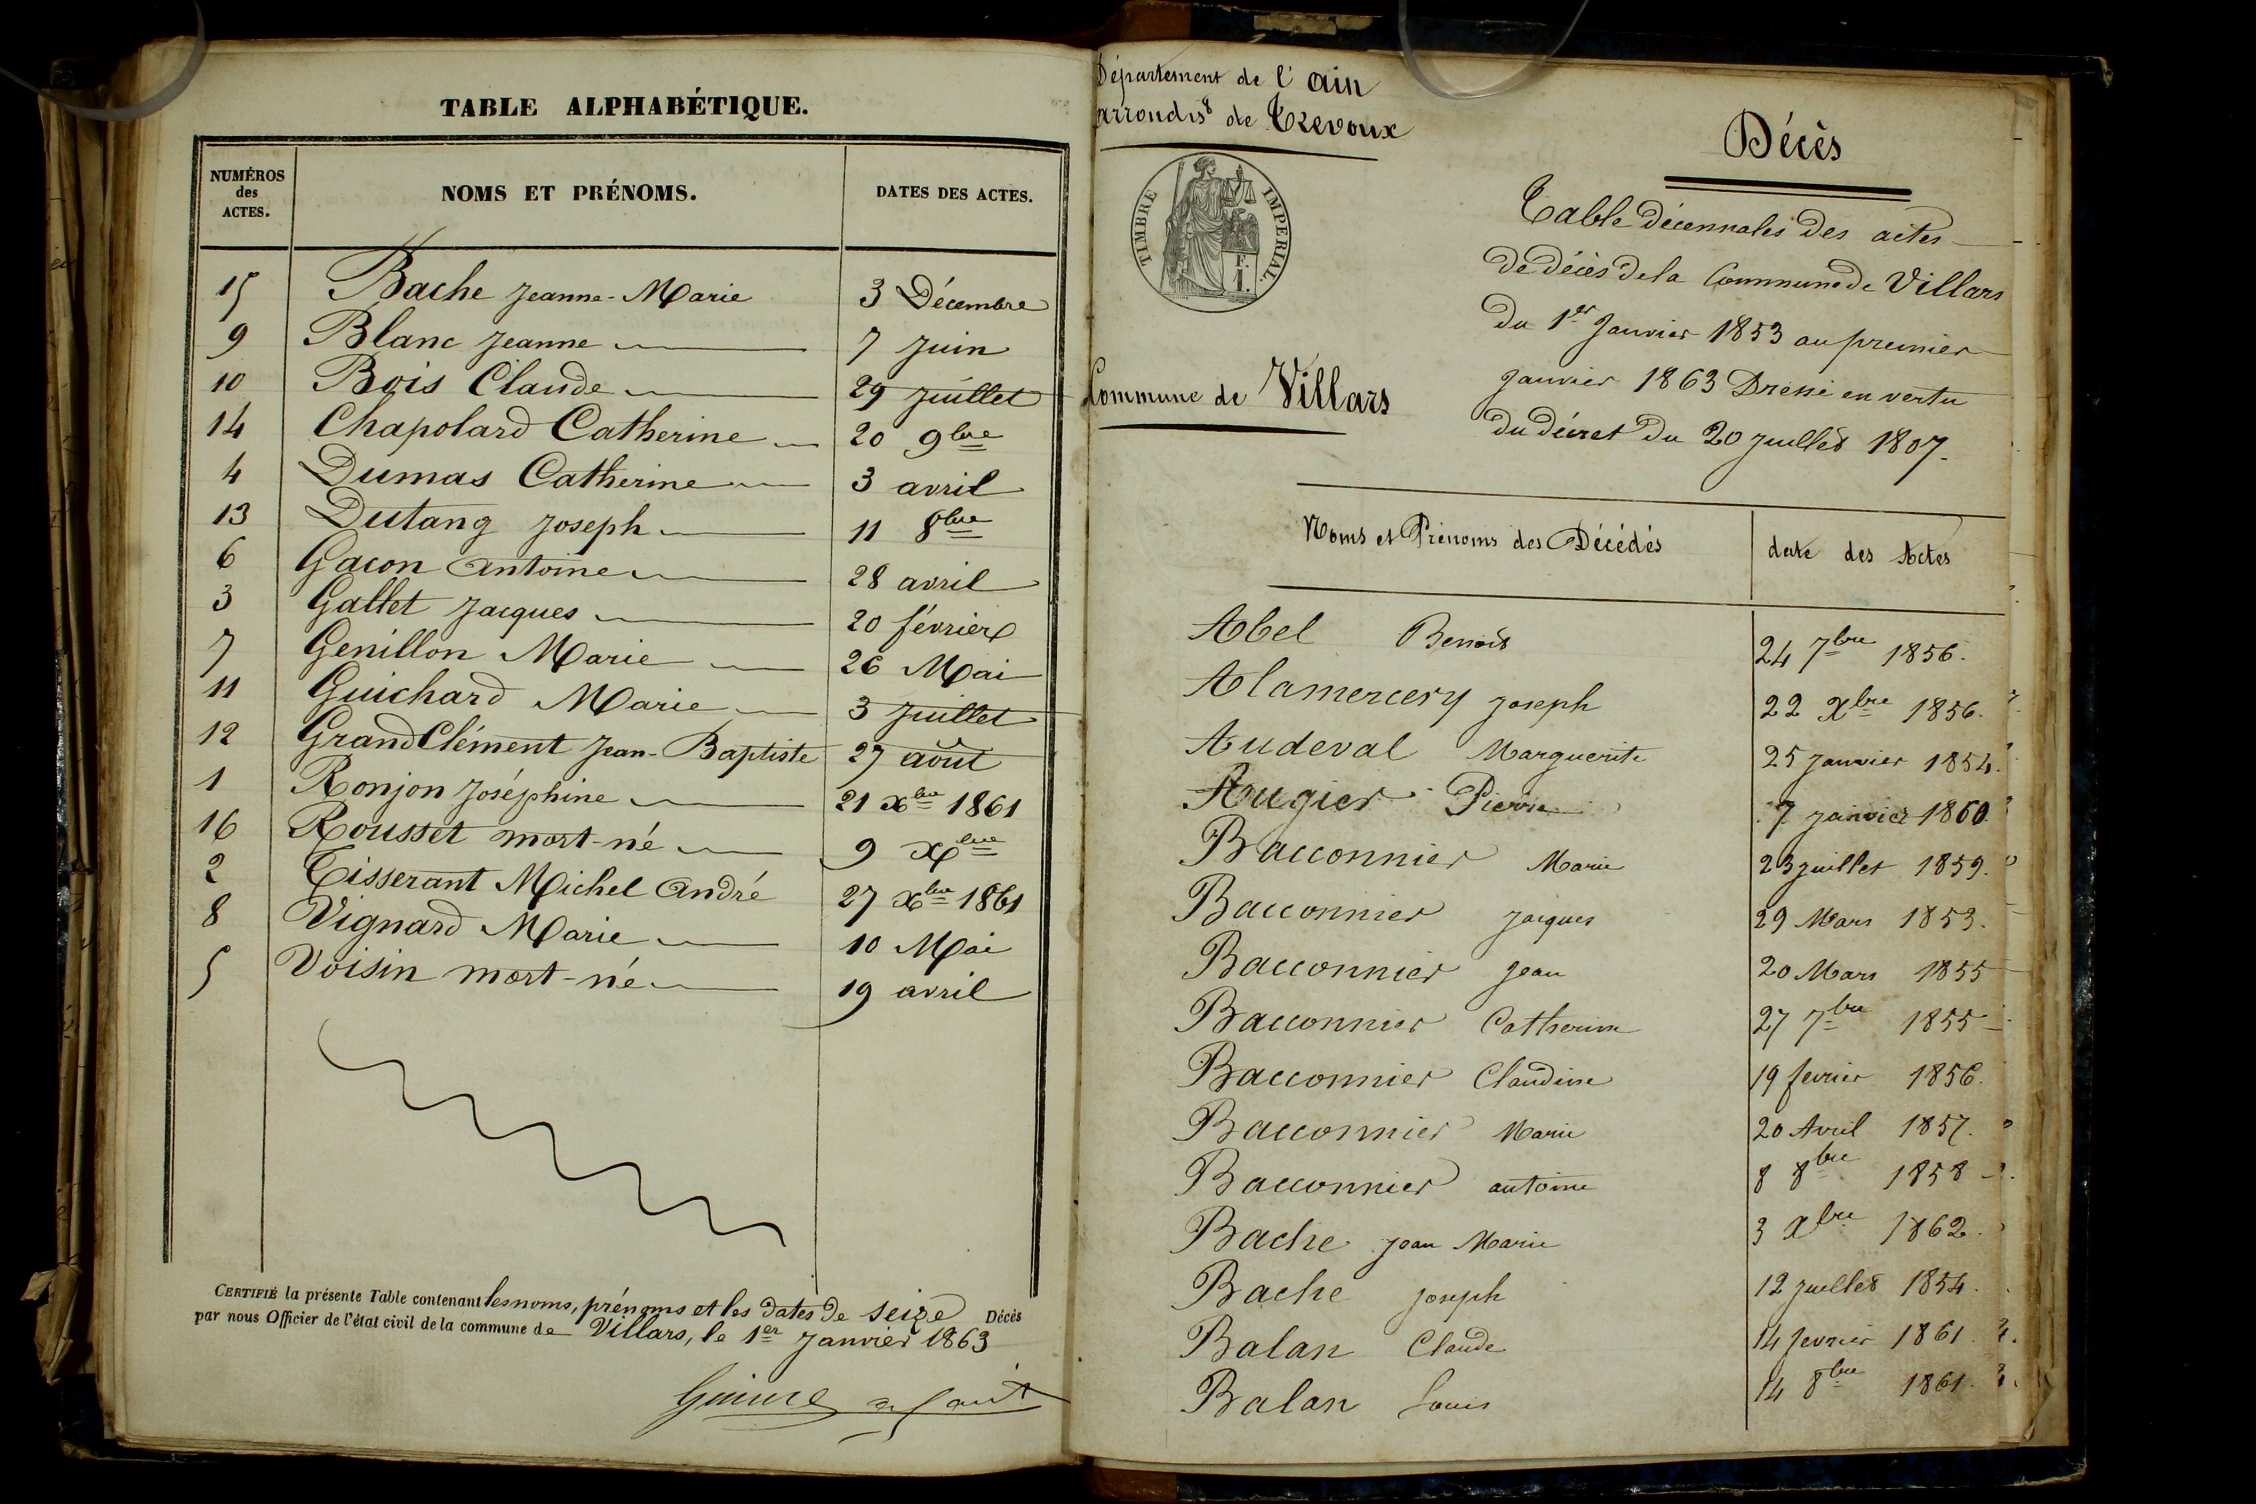 TABLE ALPHABÉTIQUE.
NUMÉROS des ACTES.
NOMS ET PRÉNOMS.
DATES DES ACTES.
15 Bache Jeanne-Marie 3 Décembre
9 Blanc Jeanne 7 Juin
10 Bois Claude 29 Juillet
14 Chapolard Catherine 20 9bre
4 Dumas Catherine 3 avril
13 Dutang Joseph 11 8bre
6 Gacon Antoine 28 avril
3 Gallet Jacques 20 février
7 Genillon Marie 26 Mai
11 Guichard Marie 3 Juillet
12 GrandClément Jean-Baptiste 27 août
1 Ronjon Joséphine 21 xbre 1861
16 Rousset mort-né 9 xbre
2 Tisserant Michel André 27 xbre 1861
8 Vignard Marie 10 Mai
5 Voisin mort-né 19 avril
CERTIFIÉ la présente Table contenant les noms, prénoms et les dates de seize Décès
par nous Officier de l'état civil de la commune de Villars, le 1er Janvier 1863
Département de l'ain
arrondist de Trevoux
TIMBRE IMPERIAL.
F.
1.
Commune de Villars
Décès
Table décennales des actes
de décès de la Commune de Villars
du 1er Janvier 1853 au premier
Janvier 1863 Dressé en vertu
du décret du 20 Juillet 1807.
Noms et Prénoms des Décédés
date des Actes
Abel Benoit 24 7bre 1856.
Alamercery Joseph 22 Xbre 1856.
Audeval Marguerite 25 Janvier 1854.
Augier Pierre 7 janvier 1860.
Bacconnier Marie 23 juillet 1859.
Bacconnier Jacques 29 Mars 1853.
Bacconnier Jean 20 Mars 1855
Bacconnier Catherine 27 7bre 1855
Bacconnier Claudine 19 fevrier 1856.
Bacconnier Marie 20 Avril 1857.
Bacconnier antoine 8 8bre 1858
Bache Jean Marie 3 Xbre 1862.
Bache Joseph 12 juillet 1854.
Balan Claude 14 fevrier 1861.
Balan Louis 14 8bre 1861.